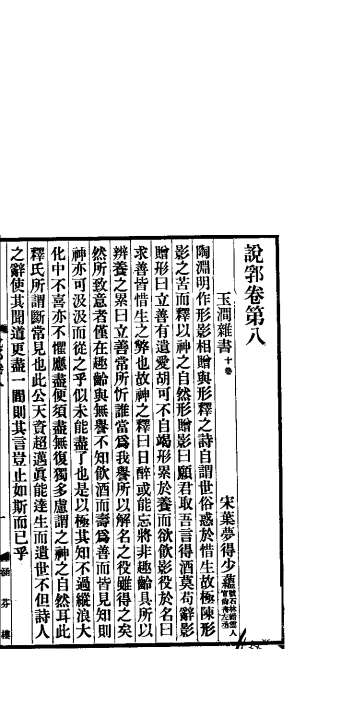 說郛卷第八
玉澗雜書 十卷 宋葉夢得少蘊 號石林
陶淵明作形影相贈與形釋之詩自謂世俗惑於惜生故極陳形
影之苦而釋以神之自然形贈影曰願君取吾言得酒莫苟辭影
贈形曰立善有遺愛胡可不自竭形累於養而欲飲影役於名曰
求善皆惜生之弊也故神之釋曰日醉或能忘將非趣齡具所以
辨養之累曰立善常所忻誰當爲我譽所以解名之役雖得之矣
然所致意者僅在趣齡與無譽不知飲酒而壽爲善而皆見知則
神亦可汲汲而從之乎似未能盡了也是以極其知不過縱浪大
化中不喜亦不懼應盡便須盡無復獨多慮謂之神之自然耳此
釋氏所謂斷常見也此公天資超邁眞能達生而遺世不但詩人
之辭使其聞道更盡一間則其言豈止如斯而已乎
一
涵芬樓